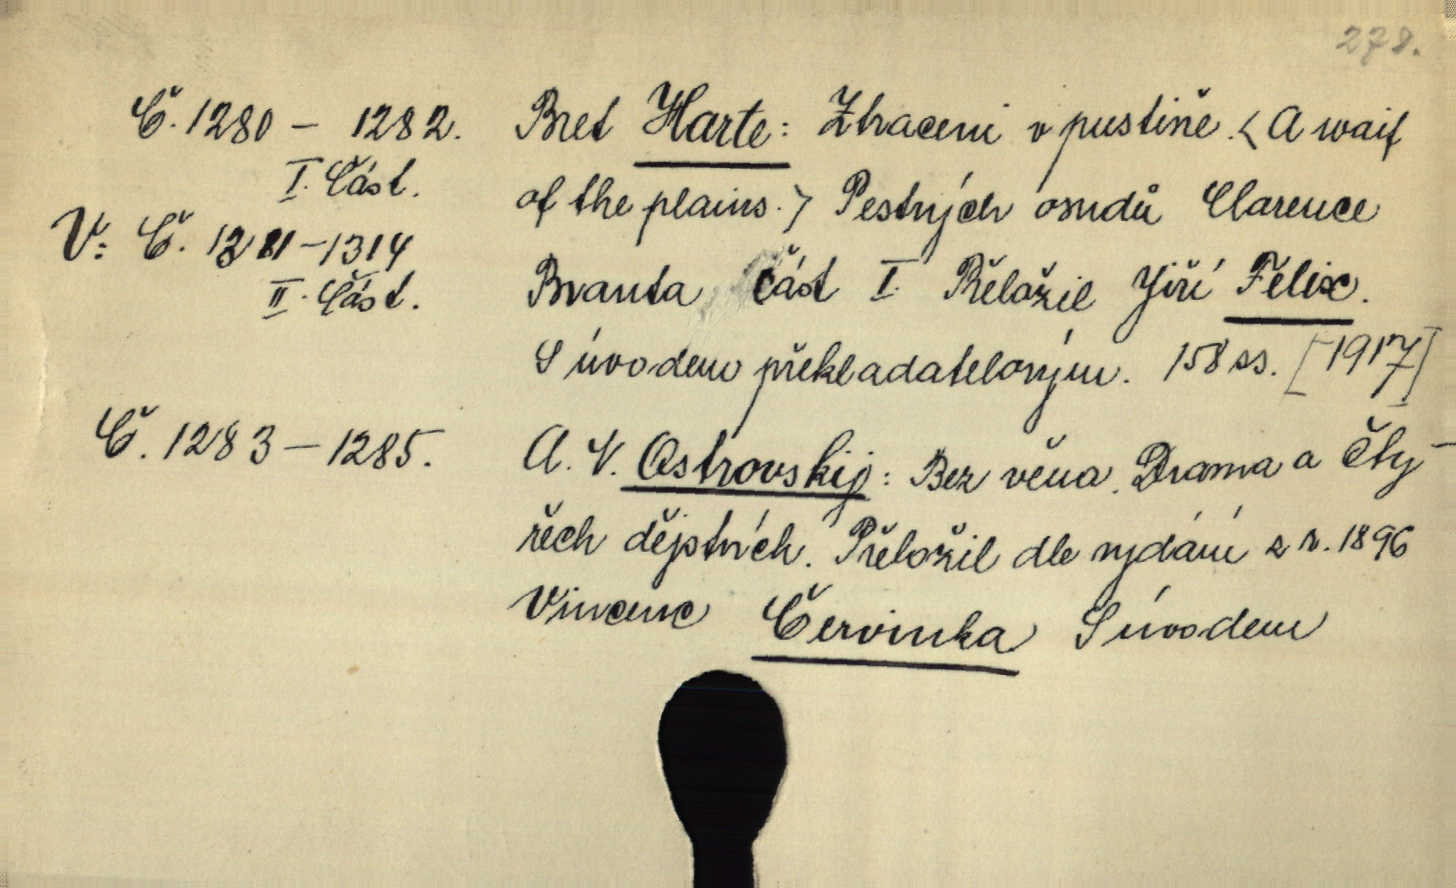 278.
Č. 1280 – 1282. Bret Harte: Ztraceni v pustině. < A waif
I. Část. of the plains. > Pestrých osudů Clarence
V: Č. –1314
II. Část. Branta část I. Přeložil Jiří Felix.
S úvodem překladatelovým. 158 ss. [1917]
Č. 1283 – 1285. A. N. Ostrovskij: Bez věna. Drama o čty-
řech dějstvích. Přeložil dle vydání z r. 1896
Vincenc Červinka S úvodem